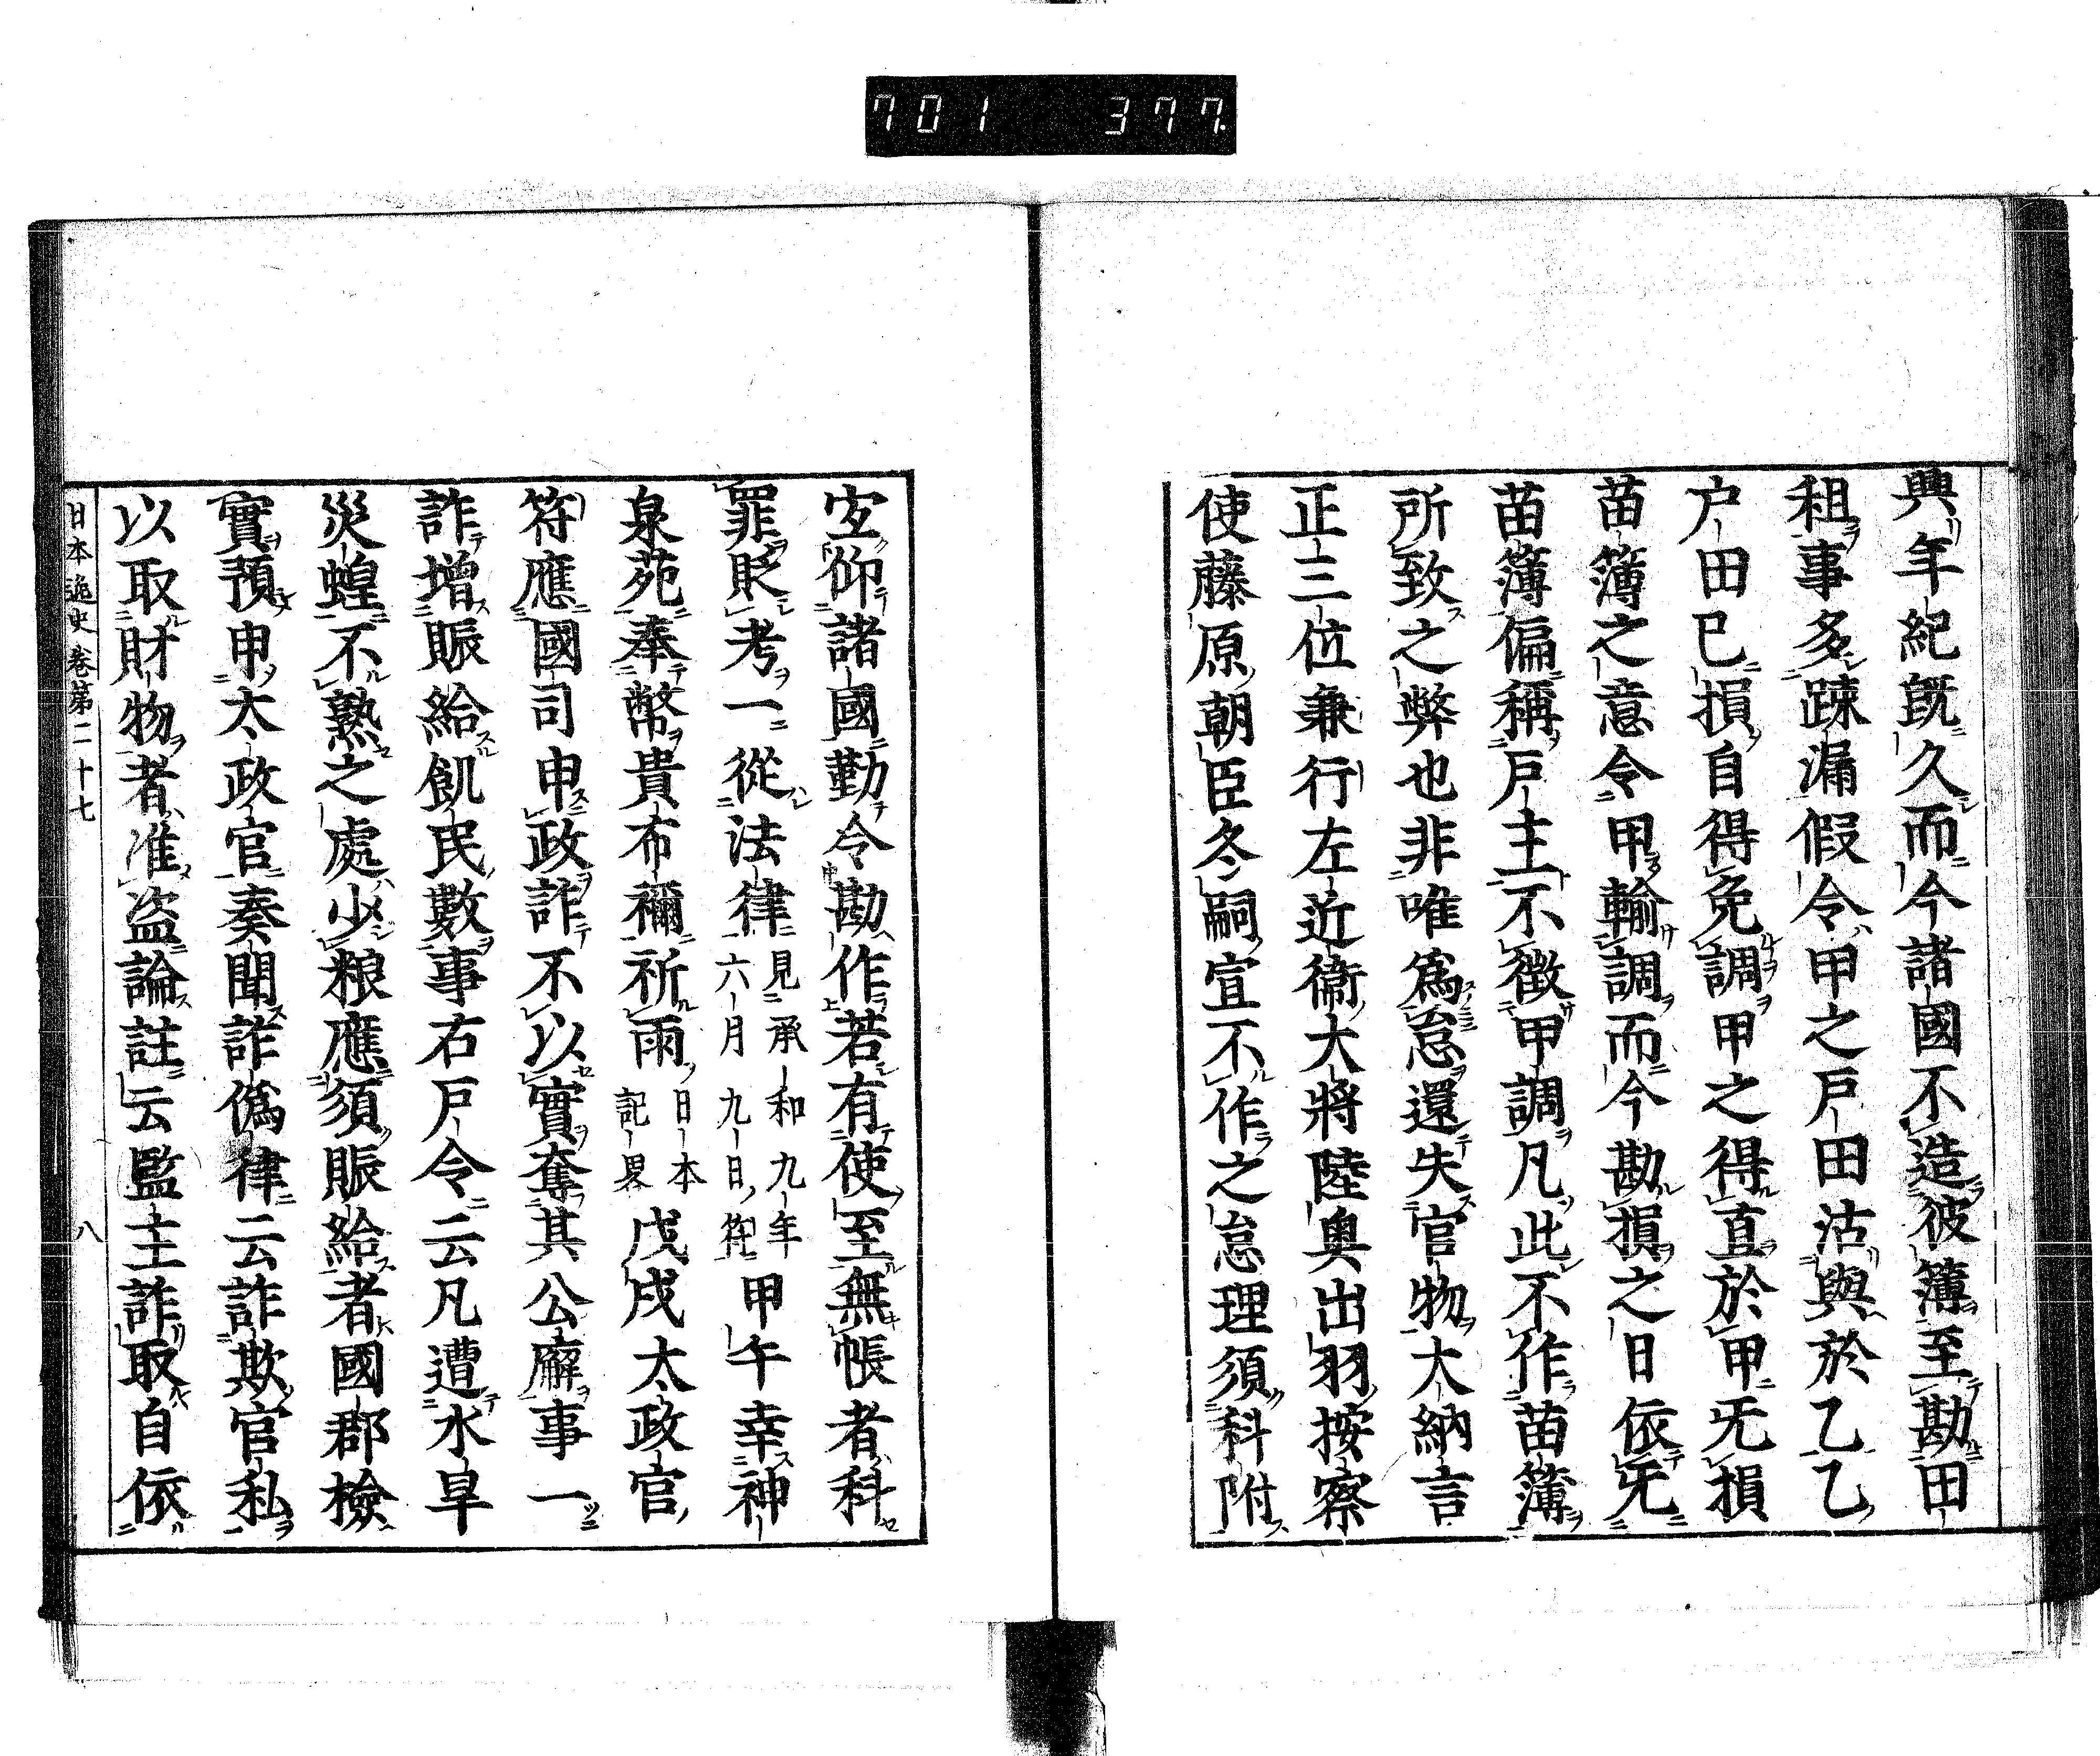 701 377
興年紀既久而今諸國不造彼簿至勘田
租事多踈漏假令甲之戸田沽與於乙乙
戸田已損自得免調甲之得直於甲旡損
苗簿之意令甲輸調而今勘損之日依旡
苗簿偏稱戸主不徴甲調凡此不作苗簿
所致之弊也非唯爲怠還失官物大納言
正三位兼行左近衞大將陸奥出羽按察
使藤原朝臣冬嗣宣不作之怠理須科附
宜仰諸國勤令勘作若有使至無帳者科
罪貶考一從法律見承和九年六月九日符甲午幸神
泉苑奉幣貴布禰祈雨日本記畧戊戌太政官
符應國司申政詐不以實奪其公廨事一
詐増賑給飢民數事右戸令云凡遭水旱
災蝗不熟之處少粮應須賑給者國郡檢
實預申太政官奏聞詐僞律云詐欺官私
以取財物者准盗論註云監主詐取自依
日本逸史卷第二十七 八